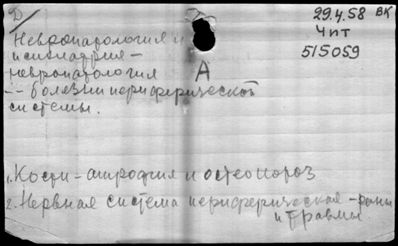 Д
29.4.58 ВК
Чит
515059
Невропатология и
психиатрия —
невропатология
А
-- болезни периферической
системы.
1. Кости - атрофия и остеопороз
2. Нервная система периферическая - раны
и травмы